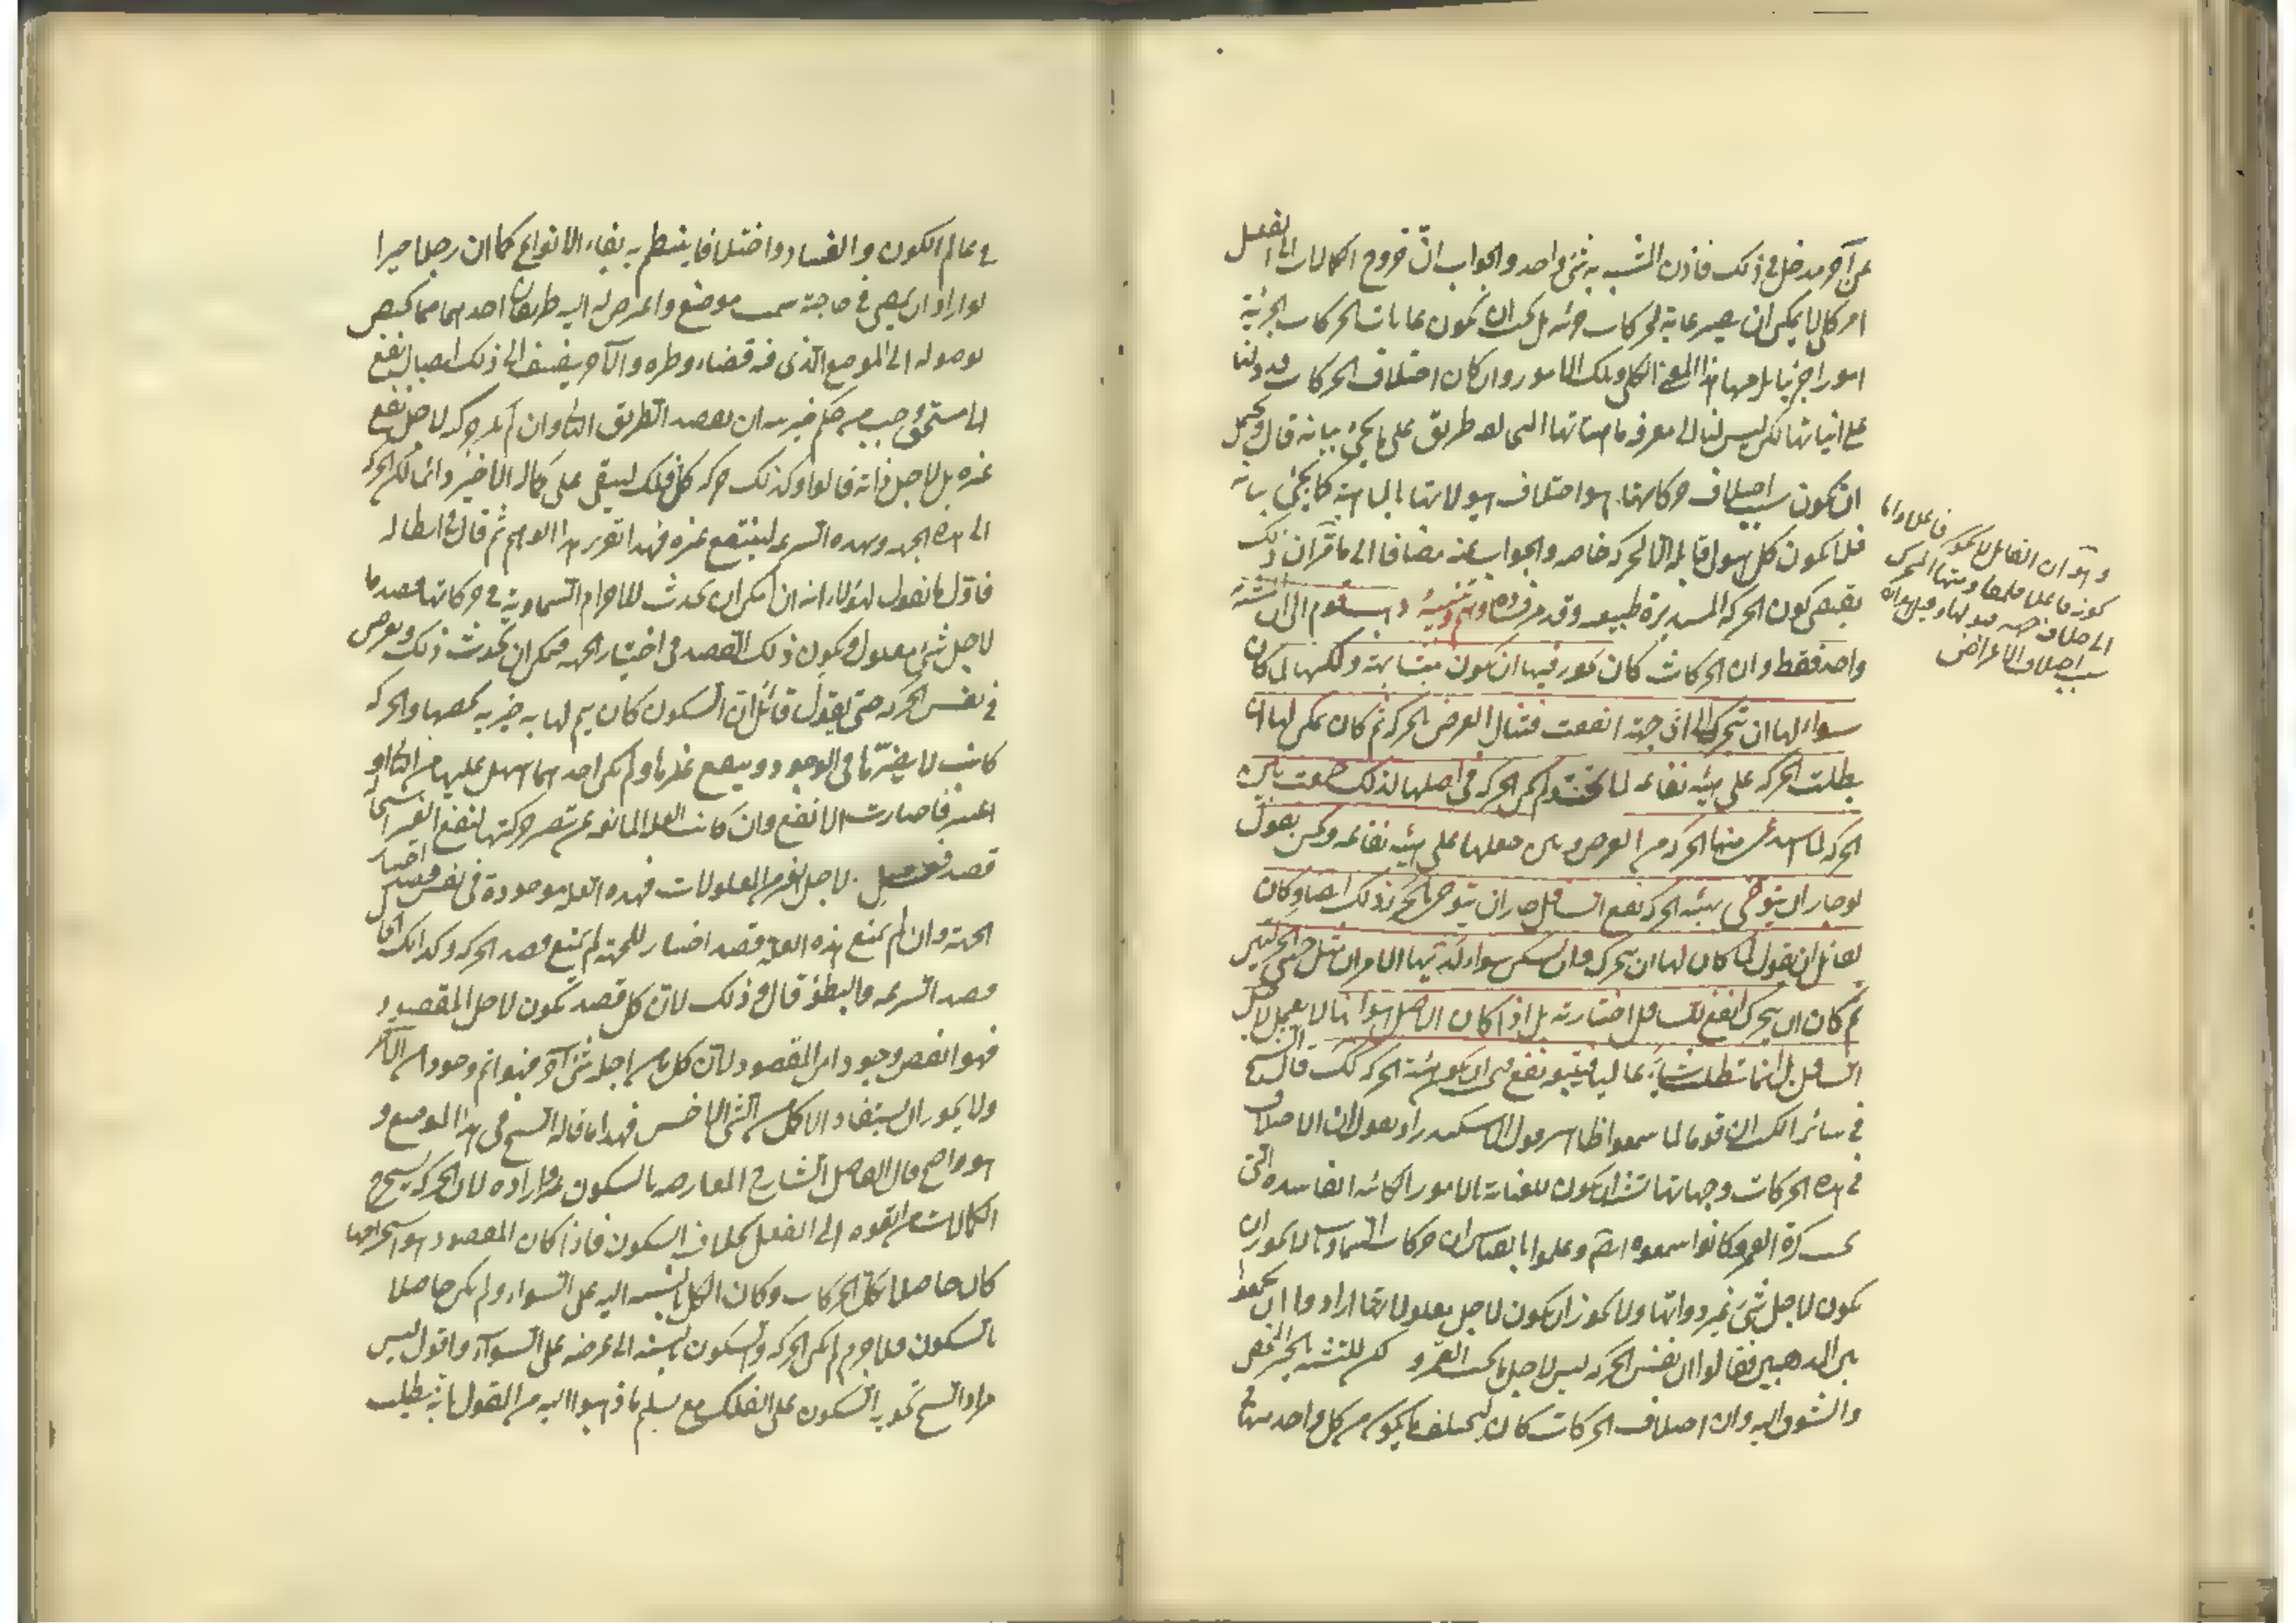 عن آخر مدخل في ذلك فاذن التشبه به شيء واحد والجواب انّ خروج الكمالات الى الفعل
امر كلي لا يمكن ان يصير غاية لحركات جزئية بل يجب ان تكون غايات الحركات الجزئية
امورا جزئية يلزمها هذا المعنى الكلي وتلك الامور وان كان اختلاف الحركات قد دلنا
على انياتها لكن ليس لنا الى معرفة ماهياتها التي لها طريق على ما يجيء بيانه قال ويحتمل
ان يكون سبب اختلاف حركاتها هو اختلاف هيولاتها بالماهية كما يجيء بيانه
فلا يكون كل هيولى قابلة الا لحركة خاصة والجواب عنه مضافا الى ما مر ان ذلك
يقتضي كون الحركة المستديرة طبيعية وقد مر فساده وهم وتنبيه ذهب قوم الى ان المتشبه به
واحد فقط وان الحركات كان يجوز فيها ان يكون متشابهة ولكنها لما كان
سواء لها ان تتحرك الى اي جهة اتفقت فتنال الغرض بالحركة ثم كان يمكن لها ان
يطلب الحركة على هيئة نفاعة لما تحته ولم يكن الحركة في اصلها لذلك جمعت بين
الحركة لما استدعى منها الحركة من الغرض وبين جعلها على هيئة نفاعة ونحن نقول
لو جاز ان يتوخى بهيئة الحركة نفع السافل جاز ان يتوخى بالحركة ذلك ايضا وكان
لقائل ان يقول لما كان لها ان تتحرك وان تسكن سواء لديها الامران مثل جهتي الحركتين
ثم كان ان يتحرك انفع للسافل اختارته بل اذا كان الاصل هو انها لا تعمل لاجل
السافل بل انما تطلب شيئا عاليا فيتبعه نفع فيجب ان يكون هيئة الحركة كذلك قال الشيخ
في سائر الكتب ان قوما لما سمعوا ظاهر قول الاسكندر اذ يقول ان الاختلاف
في هذه الحركات وجهاتها يشبه ان يكون للعناية بالامور الكائنة الفاسدة التي
تحت كرة القمر وكانوا سمعوه ايضا وعلموا بالقياس ان حركات السماويات لا يجوز ان
يكون لاجل شيء غير ذواتها ولا يجوز ان يكون لاجل معلولاتها ارادوا ان يجمعوا
بين المذهبين فقالوا ان نفس الحركة ليس لاجل ما تحت القمر ولكن للتشبه بالخير المحض
والتشوق اليه وان اختلاف الحركات كان ليختلف ما يكون من كل واحد منها
وهو ان الفاعل لا يكون فاعلا وانما
كونه فاعلا
الى خلاف جهة
سبب اختلاف الاغراض
في عالم الكون والفساد اختلافا ينتظم به بقاء الانواع كما ان رجلا خيرا
لو اراد ان يمضي في حاجته سمت موضع واعترض له اليه طريقان احدهما مما يختص
بوصوله الى الموضع الذي فيه قضاء وطره والآخر يضيف الى ذلك ايصال نفع
الى مستحق وجب من حكم خيريته ان يقصد الطريق الثاني وان لم يكن حركته لاجل نفع
غيره بل لاجل ذاته قالوا وكذلك حركة كل فلك ليبقى على كماله الاخير دائما لكن الحركة
الى هذه الجهة وبهذه السرعة لينتفع غيره فهذا تقرير هذا الوهم ثم قال في ابطاله
فاول ما نقول لهؤلاء انه ان امكن ان يحدث للاجرام السماوية في حركاتها قصد ما
لاجل شيء معلول ويكون ذلك القصد في اختيار الجهة فيمكن ان يحدث ذلك ويعرض
في نفس الحركة حتى يقول قائل ان السكون كان يتم لها به خيرية تخصها والحركة
كانت لا يضرها في الوجود وينفع غيرها ولم يكن احدهما اسهل عليها من الثاني او
اعسر فاختارت الانفع وان كانت العلة المانعة عن تصير حركتها لنفع الغير استحالة
قصد لاجل الغير من المعلولات فهذه العلة موجودة في نفس قصد اختيار
الجهة وان لم يمنع هذه العلة قصد اختيار الجهة لم يمنع قصد الحركة وكذلك الحال
قصد السرعة والبطؤ قال وذلك لان كل قصد يكون لاجل المقصود
فهو انقص وجودا من المقصود لان كل ما من اجله شيء آخر فهو اتم وجودا من الآخر
ولا يجوز ان يستفاد الاكمل من الشيء الاخس فهذا ما قاله الشيخ في هذا الموضع و
هو واضح قال الفاضل الشارح المعارضة بالسكون غير واردة لان الحركة يستخرج
الكمالات من القوة الى الفعل بخلاف السكون فاذا كان المقصود هو استخراجها
كان حاصلا بكل الحركات وكان الكل بالنسبة اليه على السواء ولم يكن حاصلا
بالسكون فلا جرم لم يكن الحركة والسكون بالنسبة الى غرضه على السواء واقول ليس
مراد الشيخ تجويز السكون على الفلك مع تسليم ما ذهبوا اليه من القول بانه يطلب